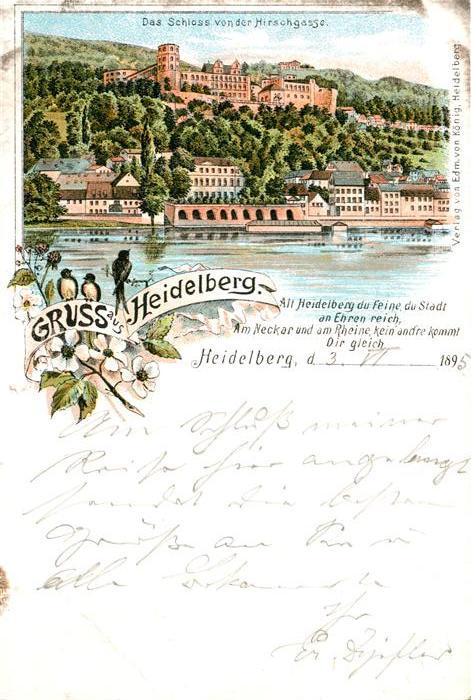 Das Schloss von der Hirschgasse.
Verlag von Edm. von König, Heidelberg
GRUSS aus Heidelberg.
Alt Heidelberg du Feine, du Stadt
an Ehren reich,
Am Neckar und am Rheine, kein andre kommt
Dir gleich
Heidelberg, d 3. VI 1895
Am Schluß meiner
Reise hier angelangt
sendet die besten
Grüße an Sie u
alle Bekannte
Ihr